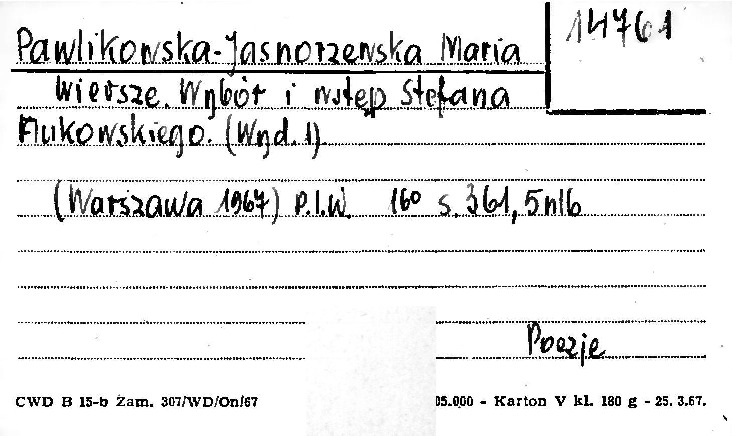 14761
Pawlikowska-Jasnorzewska Maria
Wiersze. Wybór i wstęp Stefana
Flukowskiego. (Wyd. 1)
(Warszawa 1967) P.I.W. 16° s. 361, 5 nlb
Poezje
CWD B 15-b Zam. 307/WD/On/67 05.000 - Karton V kl. 180 g - 25. 3.67.